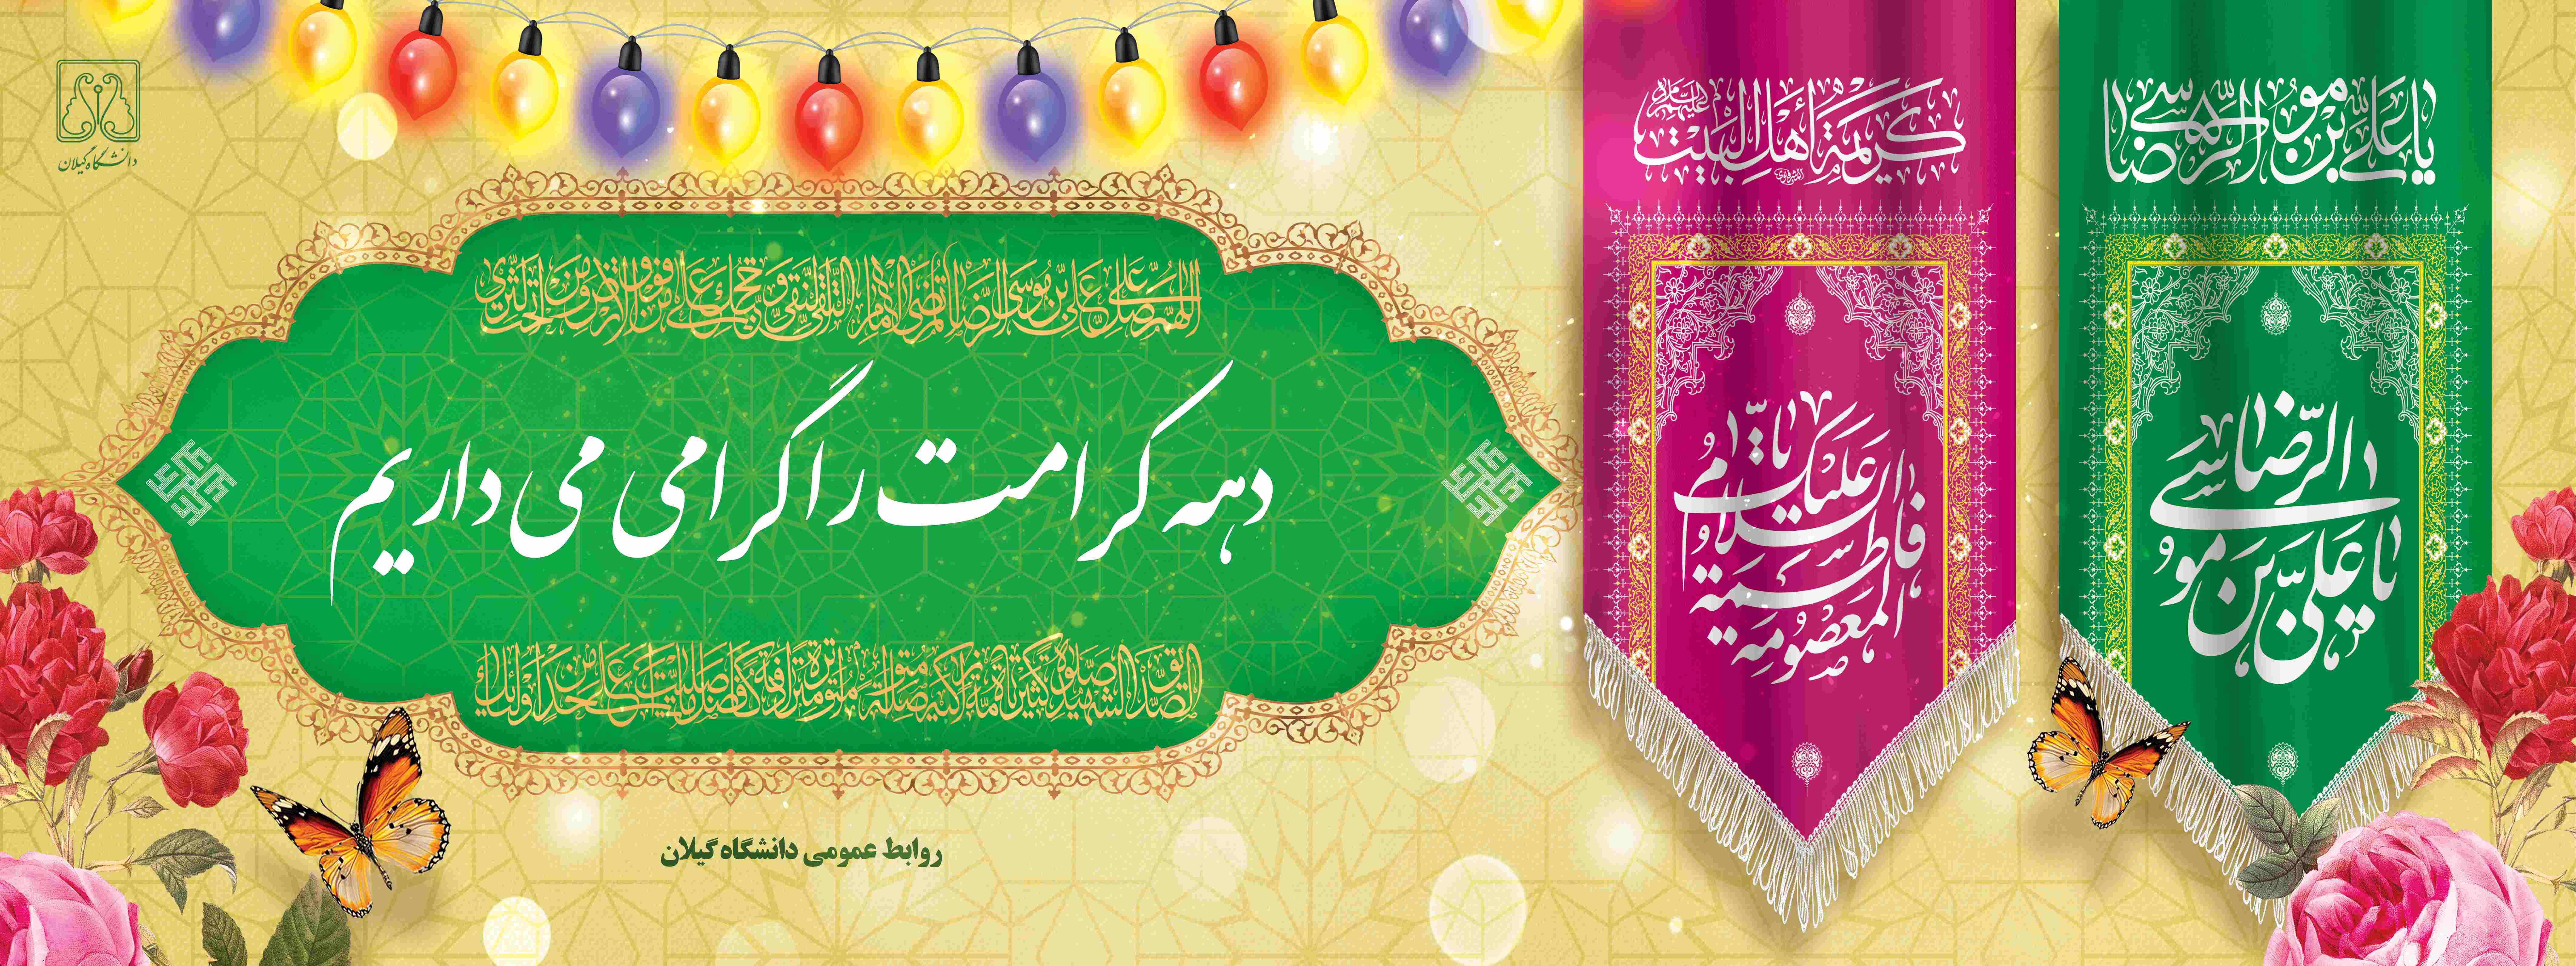 دانشگاه گیلان
اللهم صل علی علی بن موسی الرضا المرتضی الامام التقی النقی و حجتک علی من فوق الارض و من تحت الثری
دهه کرامت را گرامی می داریم
الصدیق الشهید صلوة کثیرة تامة زاکیة متواصلة متواترة مترادفة کافضل ما صلیت علی احد من اولیائک
روابط عمومی دانشگاه گیلان
کریمة اهل البیت علیهم السلام
السلام علیک یا
فاطمة
المعصومة
یا علی بن موسی الرضا
یا علی بن موسی الرضا